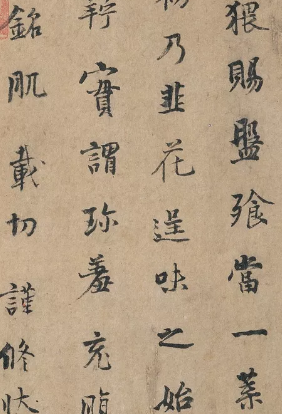 猥賜盤飧當一葉
初乃韭花逞味之始
羜實謂珍羞充腹
銘肌載切謹修狀